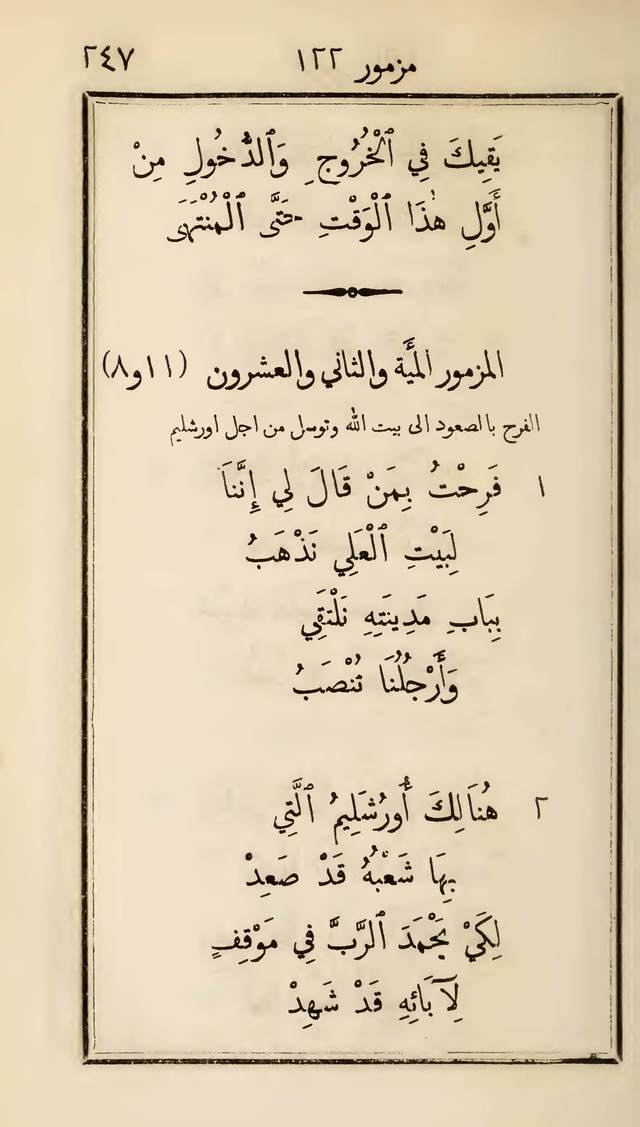 مزمور ١٢٢ ٢٤٧
يَقِيكَ فِي ٱلْخُرُوجِ وَٱلدُّخُولِ مِنْ
أَوَّلِ هٰذَا ٱلْوَقْتِ حَتَّى ٱلْمُنْتَهَى
المزمور المئَة والثاني والعشرون (١١ و٨)
الفرح بالصعود الى بيت الله وتوسل من اجل اورشليم
١ فَرِحْتُ بِمَنْ قَالَ لِي إِنَّنَا
لِبَيْتِ ٱلْعَلِي نَذْهَبُ
بِبَابِ مَدِينَتِهِ نَلْتَقِي
وَأَرْجُلُنَا تُنْصَبُ
٢ هُنَالِكَ أُورُشَلِيمُ ٱلَّتِي
بِهَا شَعْبُهُ قَدْ صَعِدْ
لِكَيْ يَحْمَدَ ٱلرَّبَّ فِي مَوْقِفٍ
لِآبَائِهِ قَدْ شَهِدْ